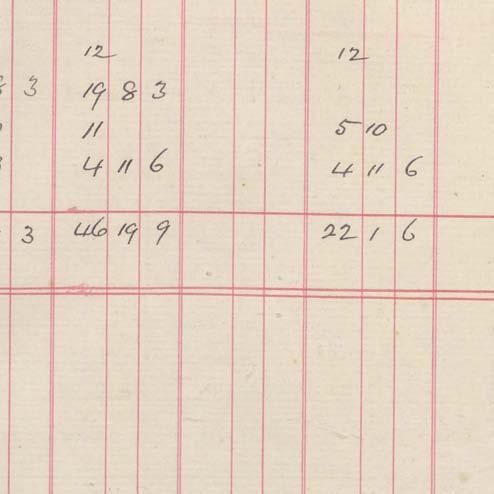 12 12
3 19 8 3
11 5 10
4 11 6 4 11 6
3 46 19 9 22 1 6